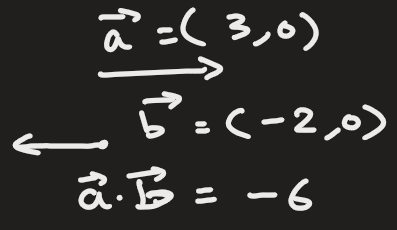 a⃗ = (3,0)
b⃗ = (-2,0)
a⃗ · b⃗ = -6